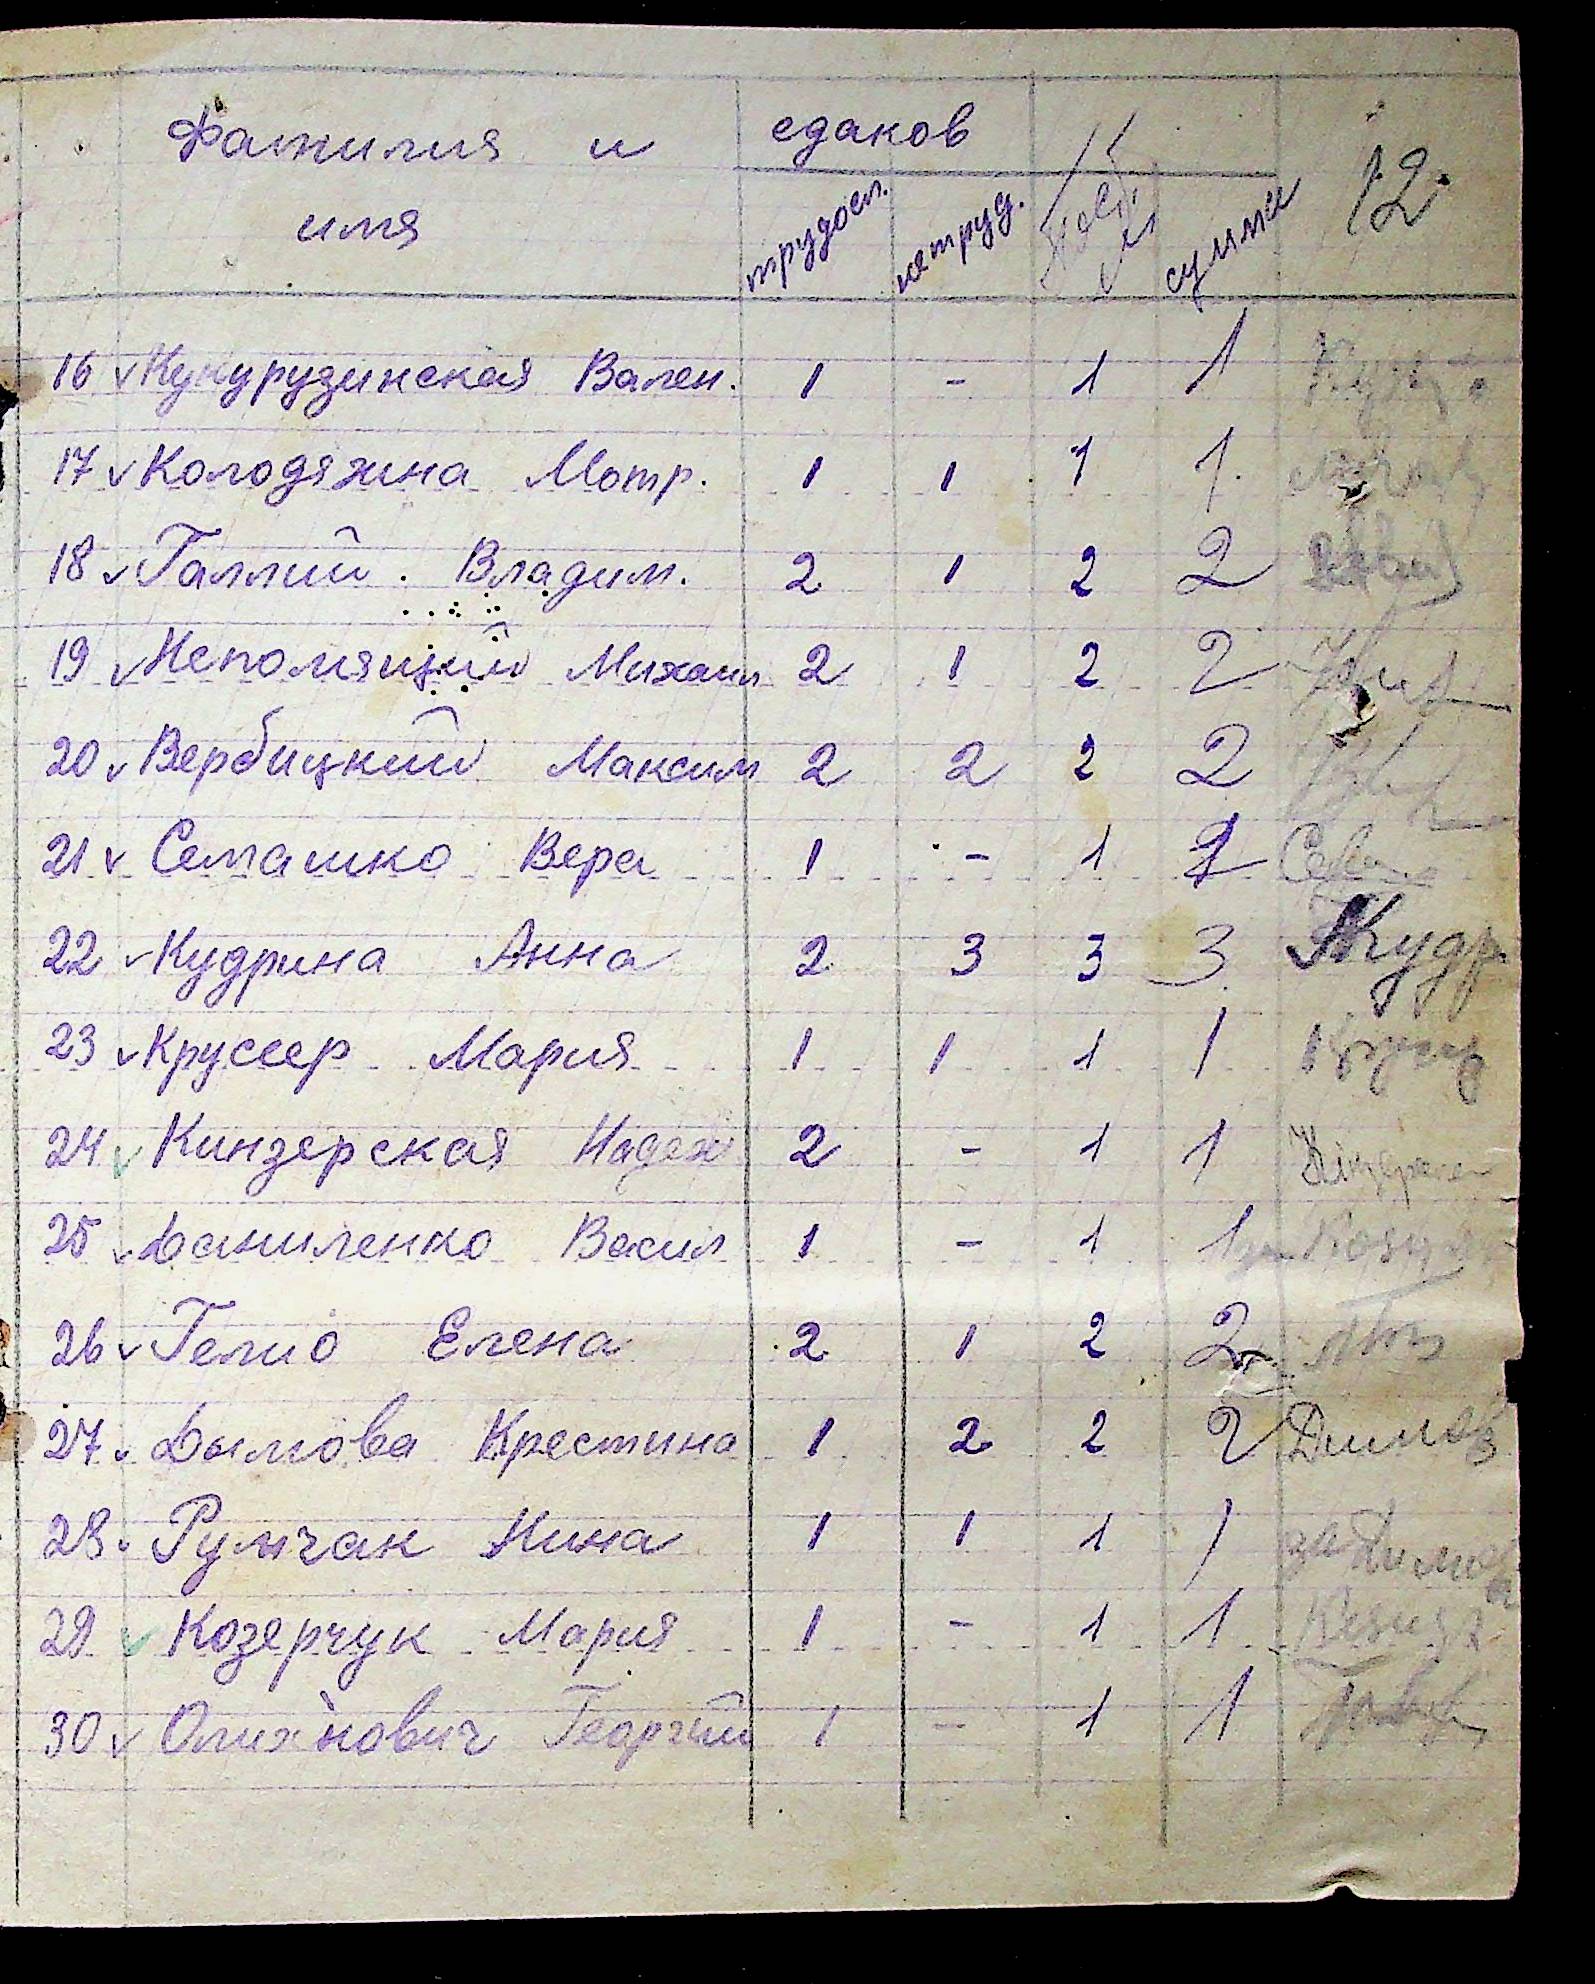 Фамилия и едаков 12.
имя трудосп. нетруд. сумма
16 v Кукурудзинская Вален. 1 - 1 1
17 v Колодяжна Мотр. 1 1 1 1.
18 v Галлий. Владим. 2 1 2 2
19 v Непомящий Михаил 2 1 2 2
20 v Вербицкий Максим 2 2 2 2
21 v Семашко Вера 1 - 1
22 v Кудрина Анна 2 3 3 3 Кудр
23 v Круссер Мария 1 1 1 1
24 v Кинзерская Надеж 2 - 1 1
25 v Даниленко Васил 1 - 1 1
26 v Гелио Елена 2 1 2 2
27 v Дымова Крестина 1 2 2 2 Димов
28 v Румчак Нина 1 1 1 1 за Димов
29 v Козерчук Мария 1 - 1 1
30 v Олихнович Георгий 1 - 1 1